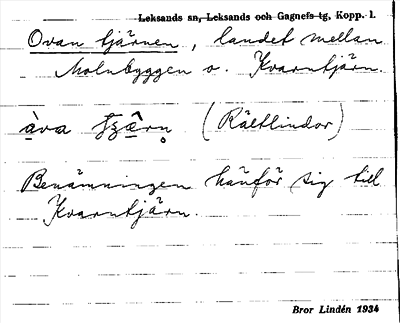 Leksands sn, Leksands och Gagnefs tg, Kopp. l.
Ovan tjärnen, landet mellan
Molnbyggen o. Kvarntjärn.
àva (Rältlindor)
Benämningen hänför sig till
Kvarntjärn.
Bror Lindén 1934